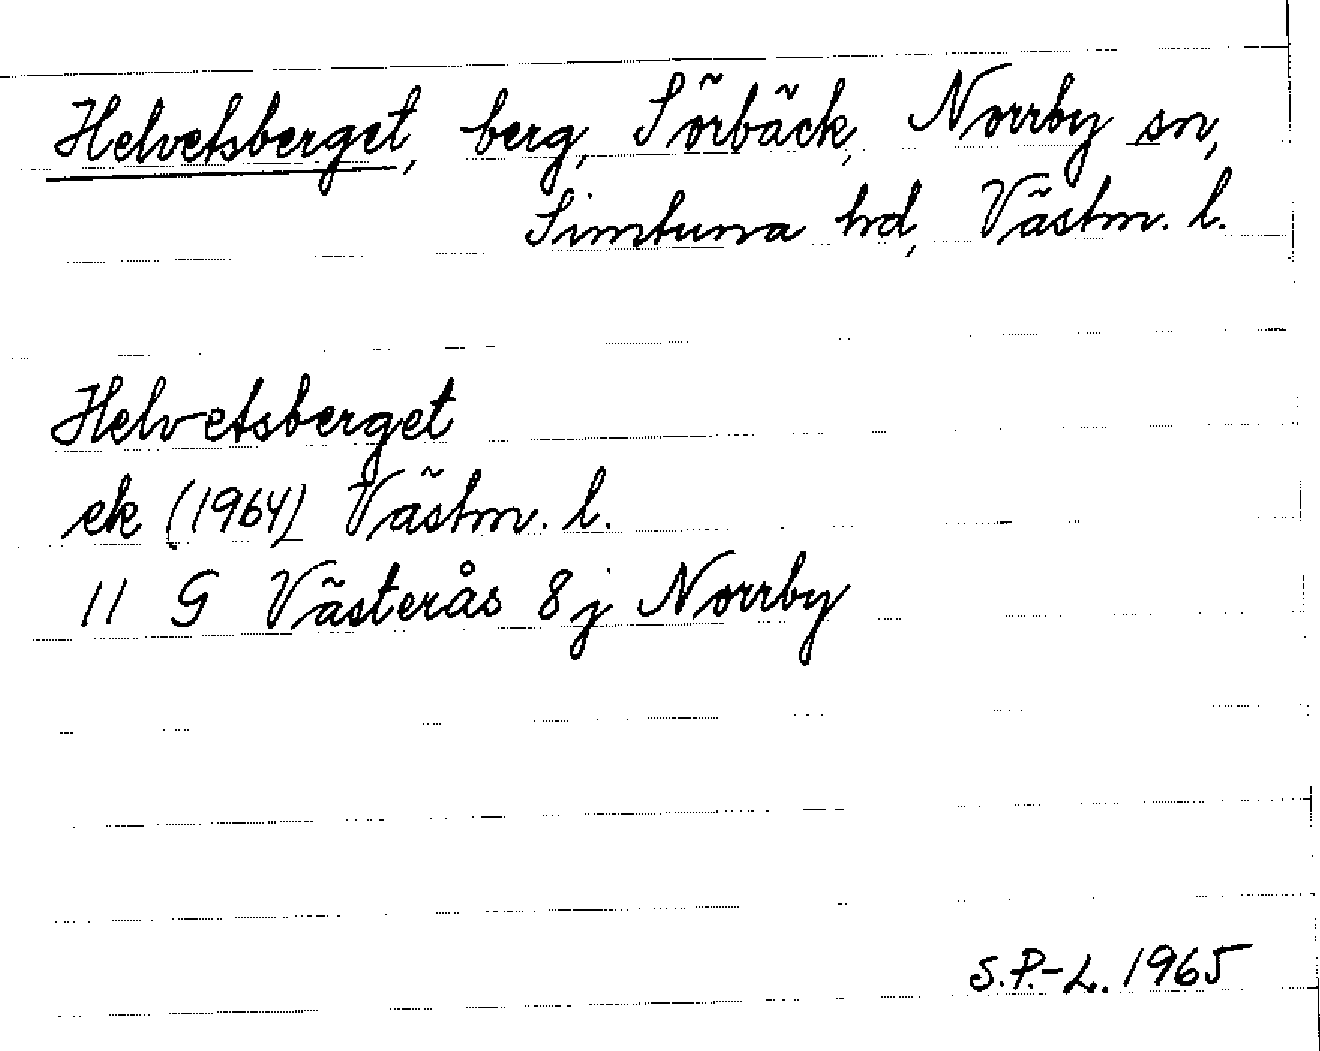 Helvetsberget, berg, Sörbäck, Norrby sn,
Simtuna hd, Västm. l.
Helvetsberget
ek (1964) Västm. l.
11 G Västerås 8 j Norrby
S.P.-L. 1965